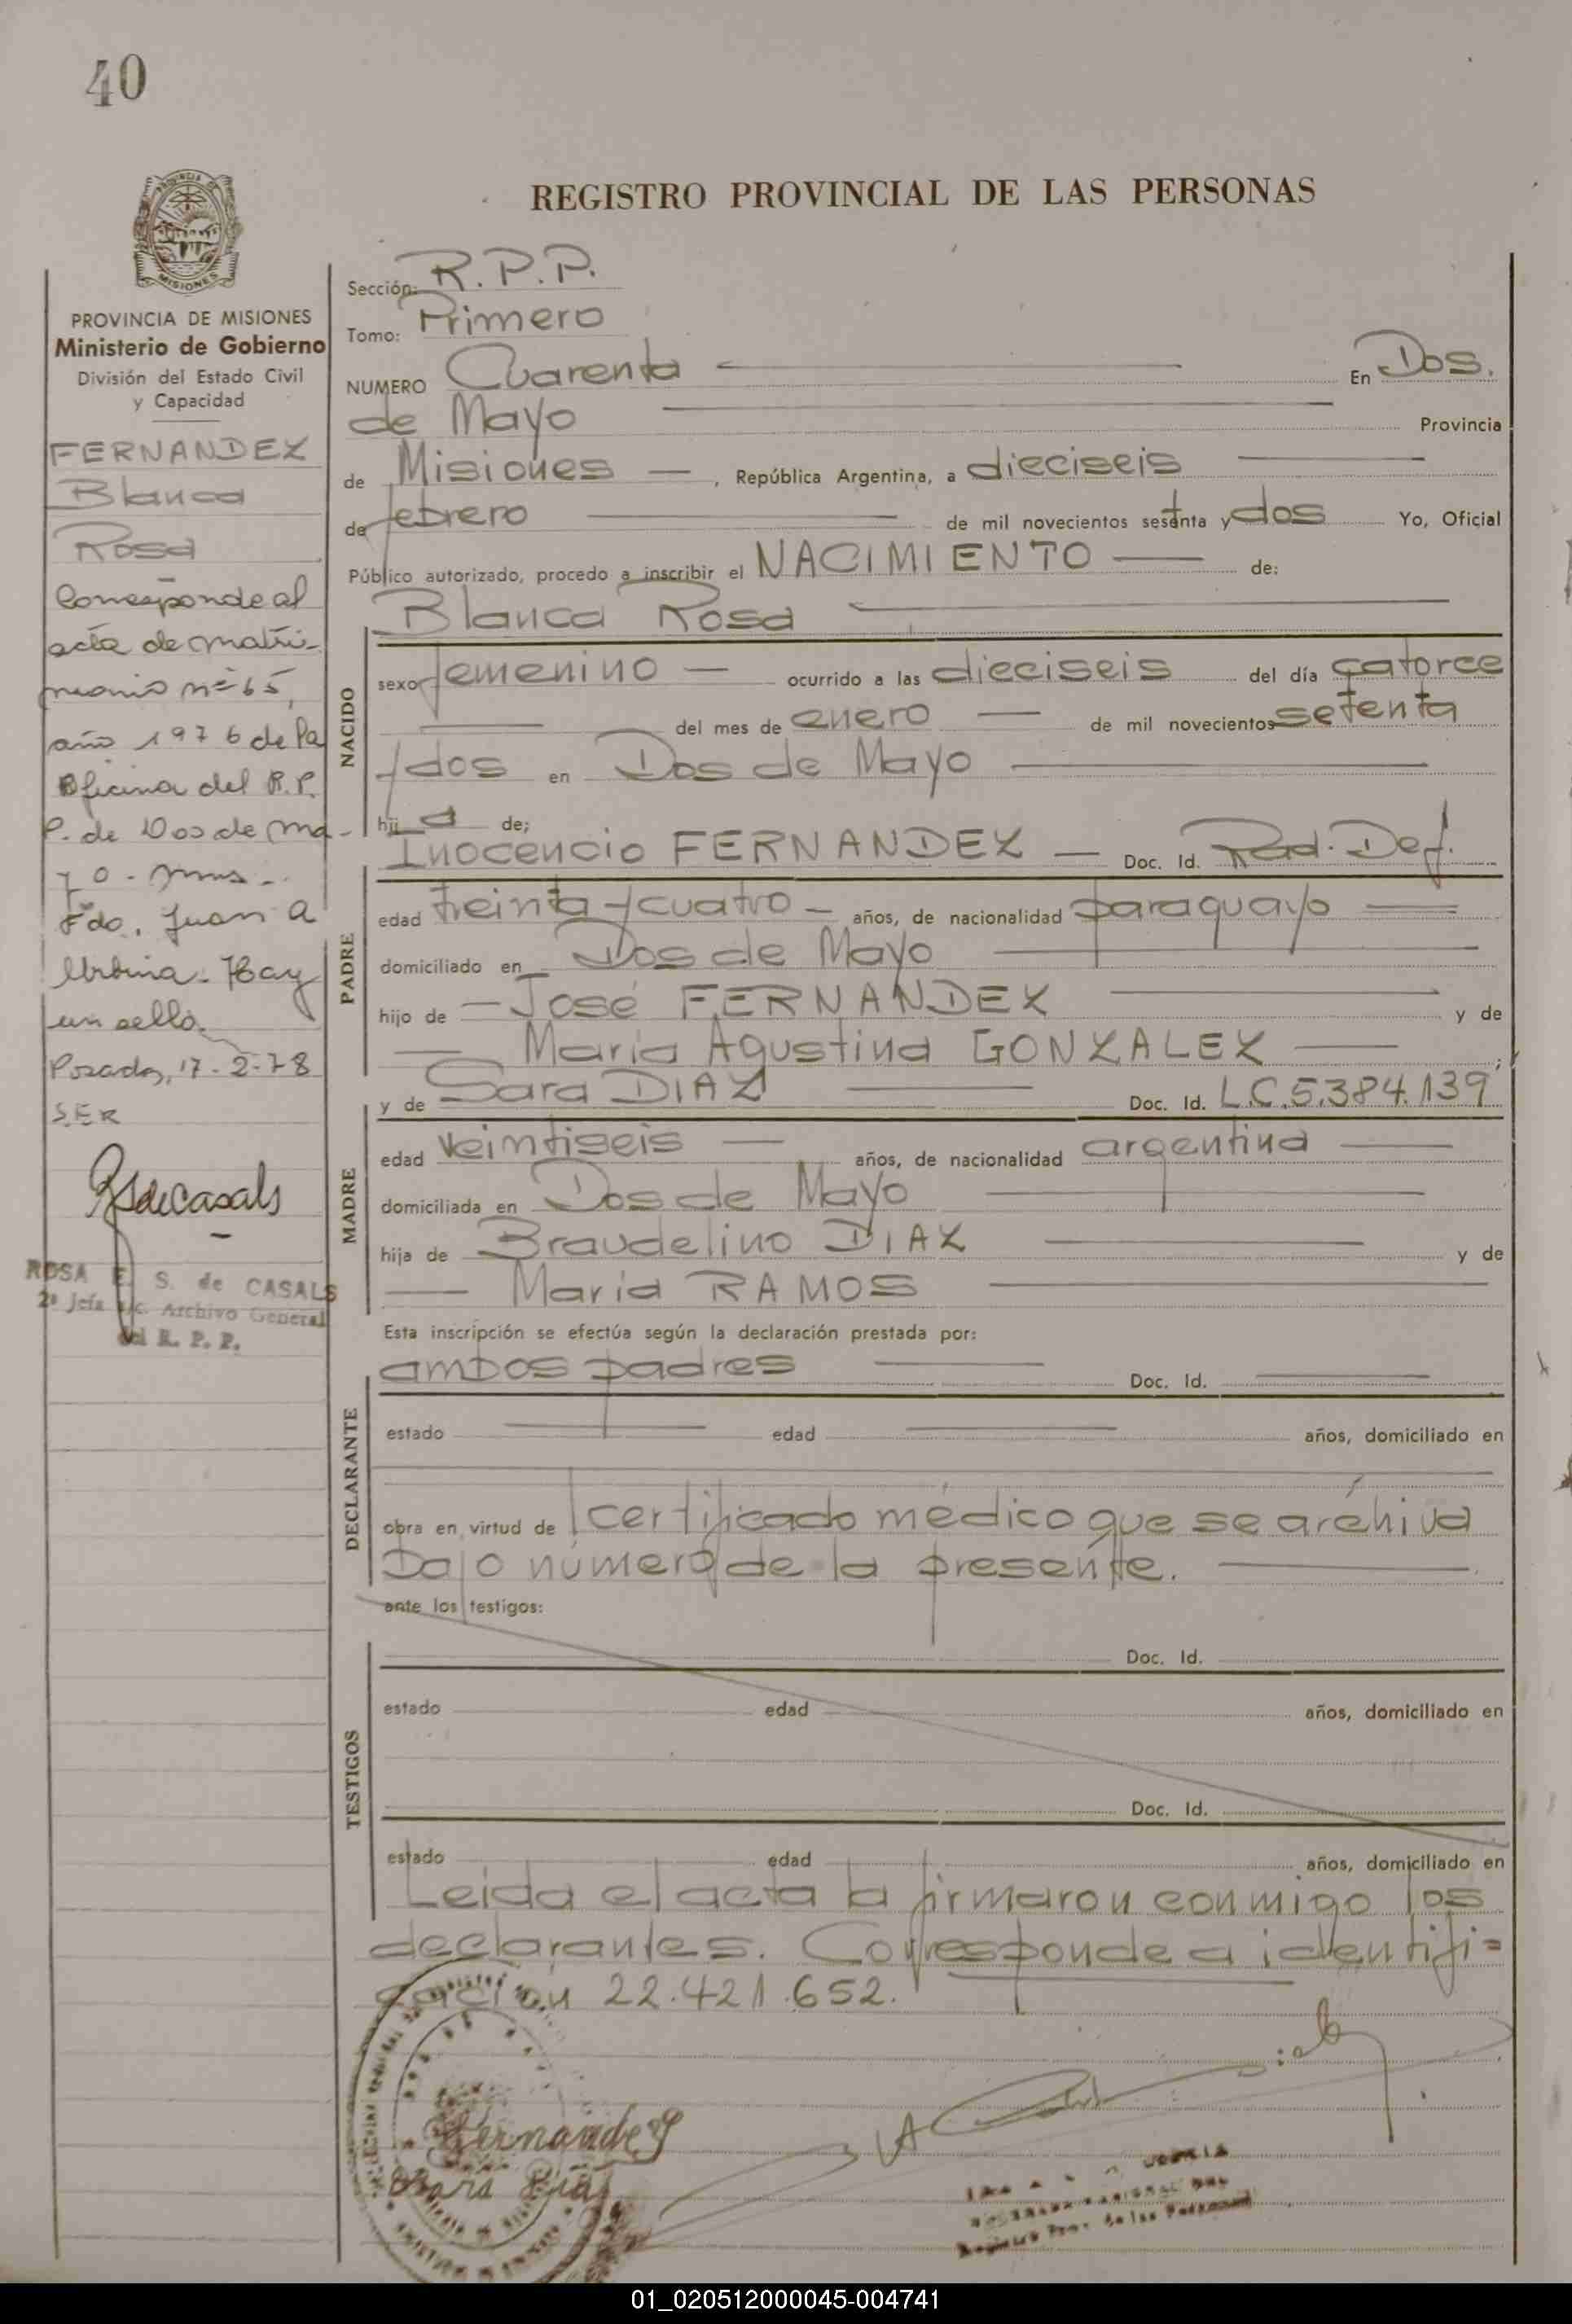 40
REGISTRO PROVINCIAL DE LAS PERSONAS
MISIONES
PROVINCIA DE MISIONES
Ministerio de Gobierno
División del Estado Civil
y Capacidad
FERNANDEZ
Blanca
Rosa
Corresponde al
acta de matri-
monio nº 65,
año 1976 de la
Oficina del R.P.
P. de Dos de Ma-
yo - Mnes -
Fdo. Juan A
Urbina. Hay
un sello.
Posadas, 17-2-78
SER
RSdeCasals
ROSA E. S. de CASALS
2ª Jefa a/c. Archivo General
del R. P. P.
Sección: R.P.P.
Tomo: Primero
NUMERO Cuarenta En Dos.
de Mayo Provincia
de Misiones , República Argentina, a dieciseis
de febrero de mil novecientos setenta y dos Yo, Oficial
Público autorizado, procedo a inscribir el NACIMIENTO de:
Blanca Rosa
NACIDO
sexo femenino ocurrido a las dieciseis del día catorce
del mes de enero de mil novecientos setenta
y dos en Dos de Mayo
hij a de;
Inocencio FERNANDEZ Doc. Id. Rad. Def.
PADRE
edad treinta y cuatro años, de nacionalidad paraguayo
domiciliado en Dos de Mayo
hijo de José FERNANDEZ y de
María Agustina GONZALEZ ;
y de Sara DIAZ Doc. Id. L.C.5.384.139
MADRE
edad veintiseis años, de nacionalidad argentina
domiciliada en Dos de Mayo
hija de Braudelino DIAZ y de
María RAMOS
Esta inscripción se efectúa según la declaración prestada por:
ambos padres Doc. Id.
DECLARANTE
estado edad años, domiciliado en
obra en virtud de certificado médico que se archiva
bajo número de la presente.
ante los testigos:
TESTIGOS
Doc. Id.
estado edad años, domiciliado en
Doc. Id.
estado edad años, domiciliado en
Leida el acta la firmaron conmigo los
declarantes. Corresponde a identifi=
cación 22.421.652.
Fernandez
Sara Diaz
01_020512000045-004741